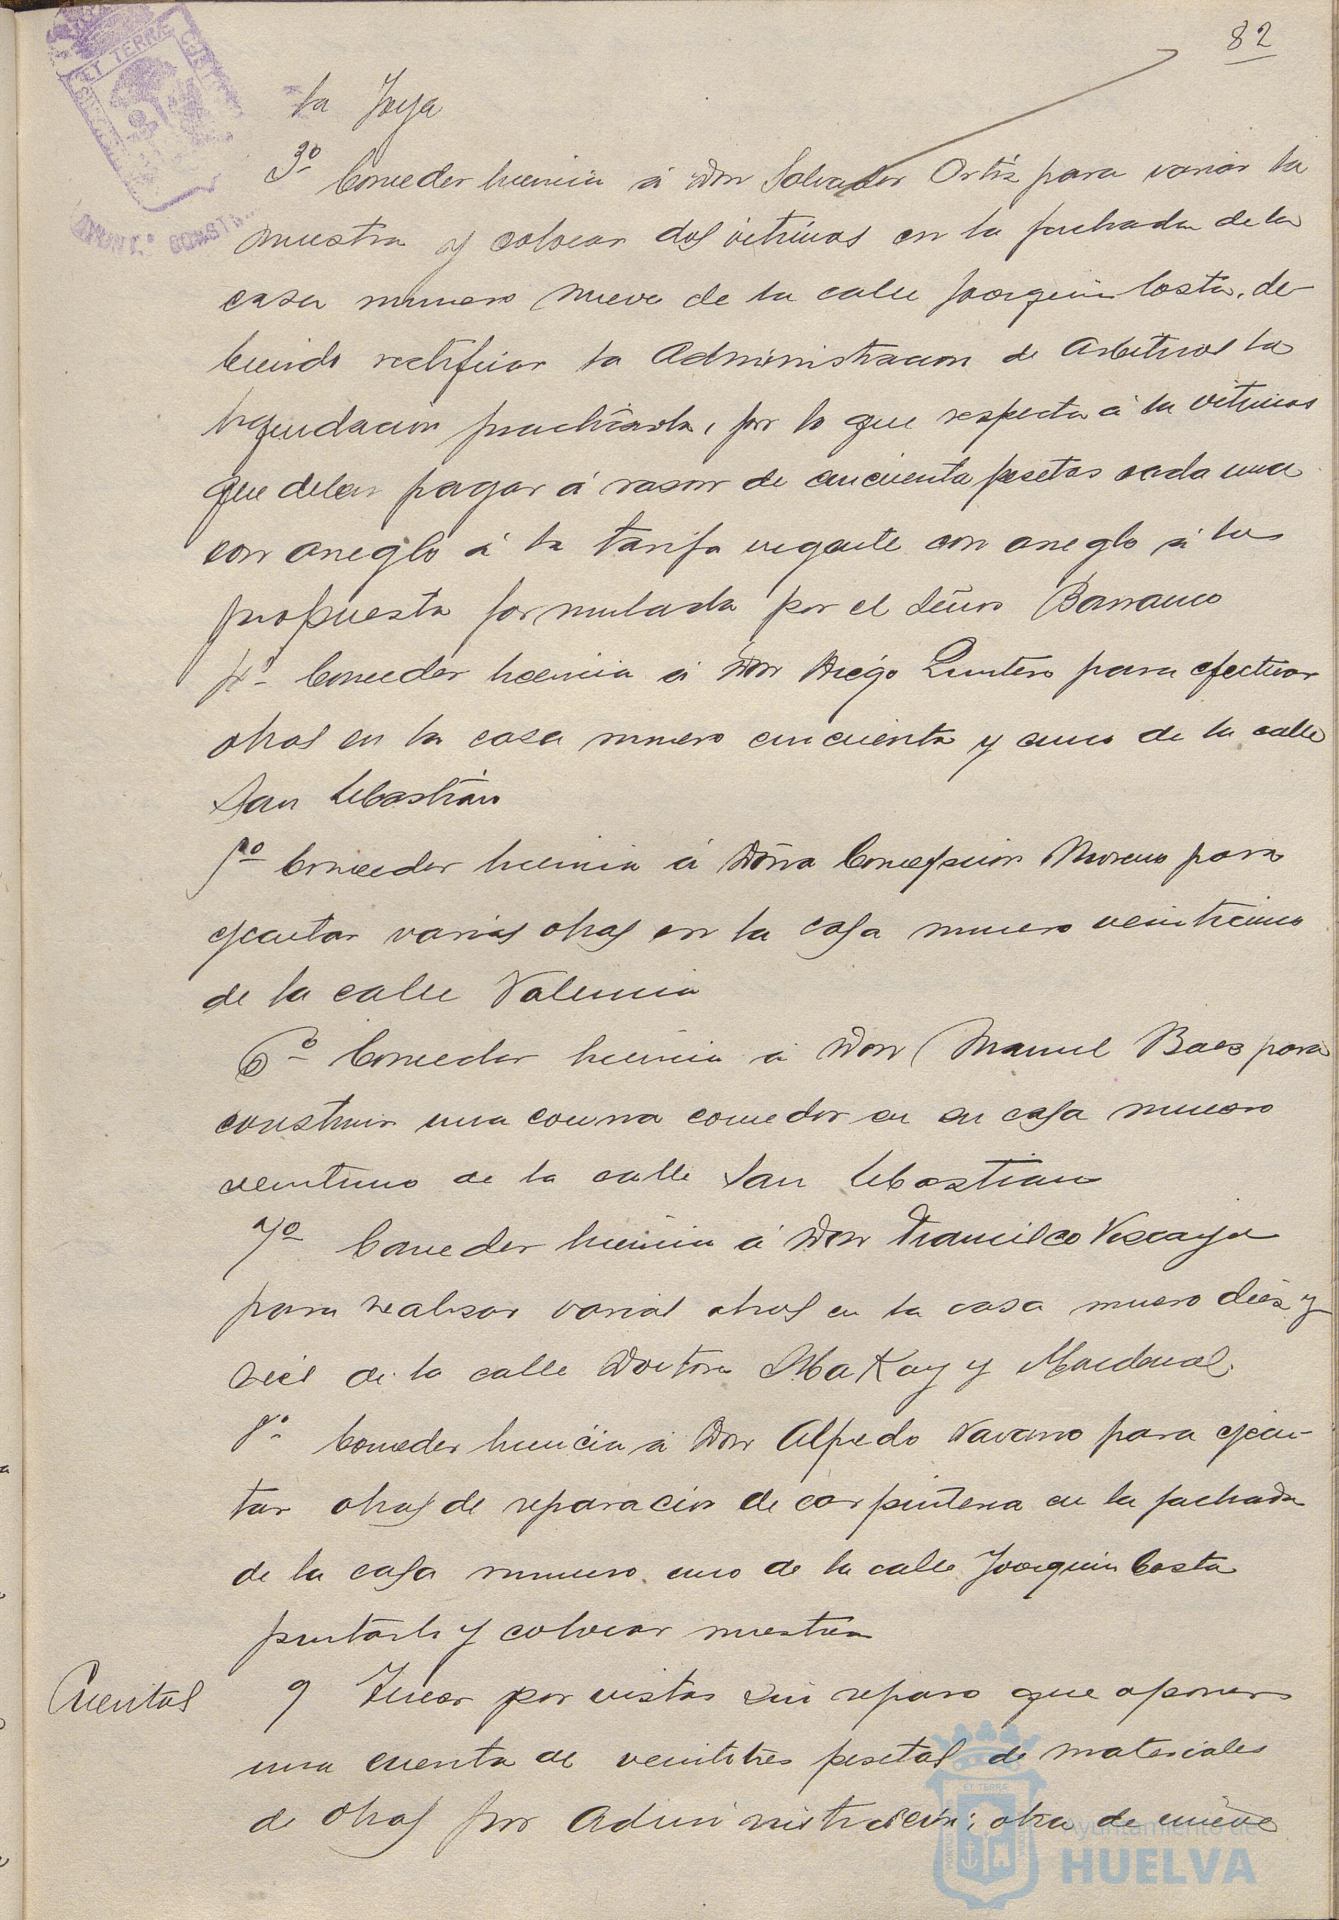 82
la Joya
3º Conceder licencia á Don Salvador Ortíz para variar la
muestra y colocar dos vitrinas en la fachada de la
casa numero nueve de la calle Joaquin Costa, de-
biendo rectificar la Administracion de Arbitrios la
liquidacion practicada, por lo que respecta á la vitrinas
que deben pagar á rason de cincuenta pesetas cada una
con arreglo á la tarifa vigente con arreglo á la
propuesta formulada por el Señor Barranco
4º Conceder licencia á Don Diego Quintero para efectuar
obras en la casa numero cincuenta y cinco de la calle
San Sebastián
5º Conceder licencia á Doña Concepcion Moreno para
ejecutar varias obras en la casa numero veinticinco
de la calle Valencia
6º Conceder licencia á Don Manuel Baez para
construir una cocina comedor en su casa numero
veintiuno de la calle San Sebastian
7º Conceder licencia á Don Francisco Vizcaya
para realizar varias obras en la casa numero diez y
seis de la calle Doctores Mackay y Macdonal.
8º Conceder licencia á Don Alfredo Navarro para ejecu-
tar obras de reparacion de carpinteria en la fachada
de la casa numero uno de la calle Joaquin Costa
pintarla y colocar muestra
Cuentas
9 Tener por vistas sin reparo que oponer
una cuenta de veintitres pesetas de materiales
de obras por Administración; otra de nueve
ET TERRÆ
Ayuntamiento de
HUELVA